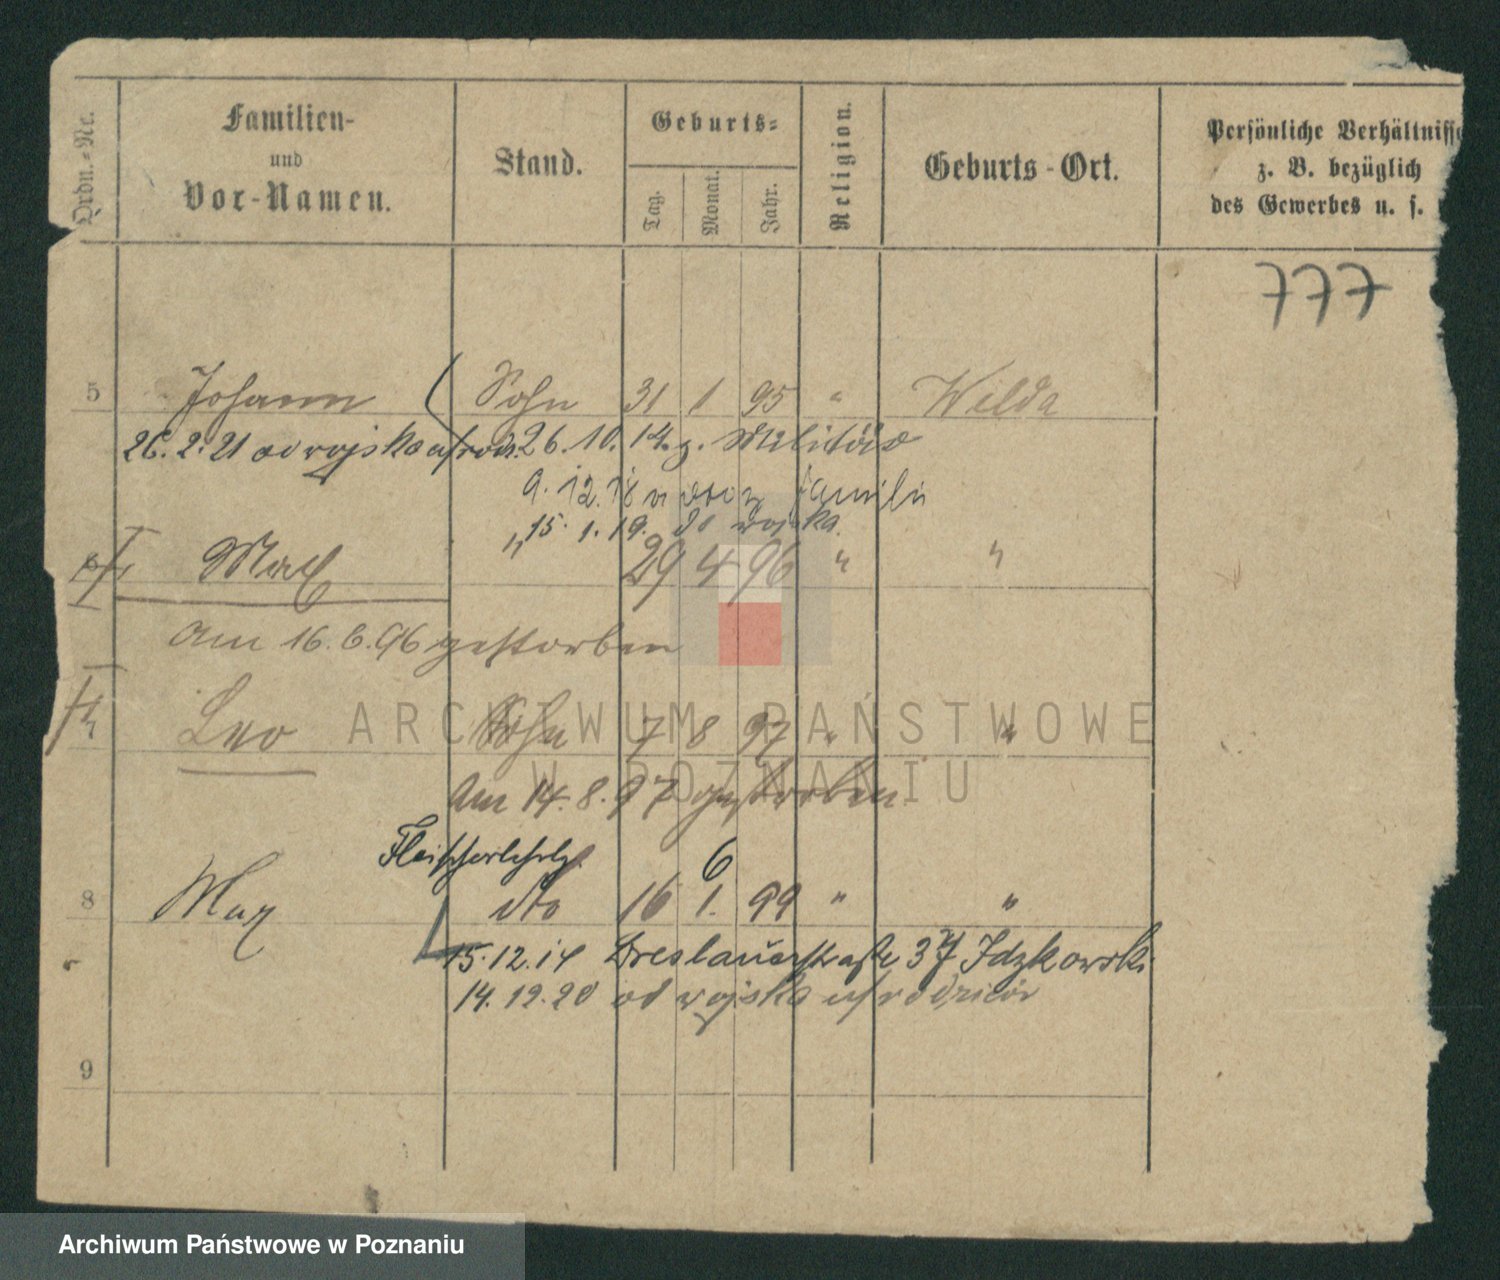 Ordn.-Nr.
Familien-
und
Vor-Namen.
Stand.
Geburts-
Tag. Monat. Jahr.
Religion.
Geburts-Ort.
Persönliche Verhältnisse
z. B. bezüglich
des Gewerbes u. s.
777
5 Johann Sohn 31 1 95 " Wilda
26.2.21 od wojska u rodz. 26.10.14. z. Militär
9.12.18 familii
15.1.19. do wojska.
6 " 29 4 96 " "
am 16.6.96 gestorben
7 Leo Sohn 7 8 97 " "
am 14.8.97 gestorben
Fleischerlehrlg.
6
8 Max dto 16 1. 99 " "
15.12.14 Breslauerstraße 37 Idzkowski
14.12.20 od wojska u rodziców
9
ARCHIWUM PAŃSTWOWE
W POZNANIU
Archiwum Państwowe w Poznaniu